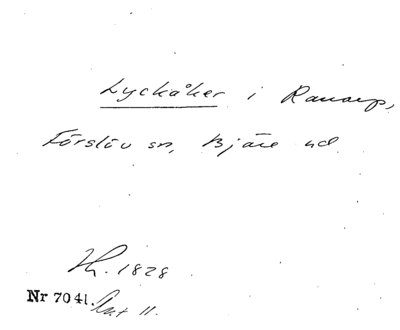 Lyckåker i Ranarp,
Förslöv sn, Bjäre hd
Th. 1828
Nr 7041. Ant 11.